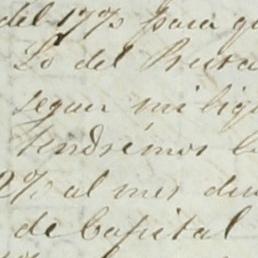 del 17% para qu
Lo del Presta
segun mi liqu
tendrémos la
2% al mes du
de Capital